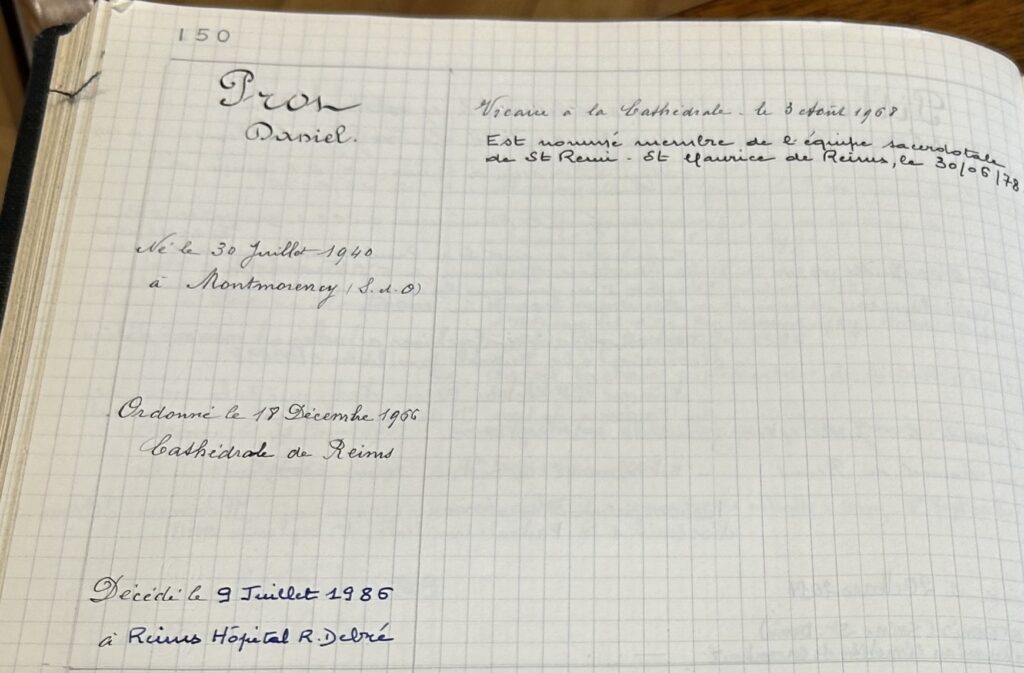 150
Pron
Daniel.
Né le 30 Juillet 1940
à Montmorency (S. et O)
Ordonné le 18 Décembre 1966
Cathédrale de Reims
Décédé le 9 Juillet 1986
à Reims Hôpital R. Debré
Vicaire à la Cathédrale le 3 Août 1968
Est nommé membre de l'équipe sacerdotale
de St Remi - St Maurice de Reims, le 30/06/78